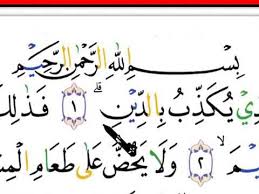 بِسْمِ اللهِ الرَّحْمٰنِ الرَّحِيْمِ
يُكَذِّبُ بِالدِّيْنِ ۗ ١ فَذٰلِكَ
٢ وَلَا يَحُضُّ عَلٰى طَعَامِ